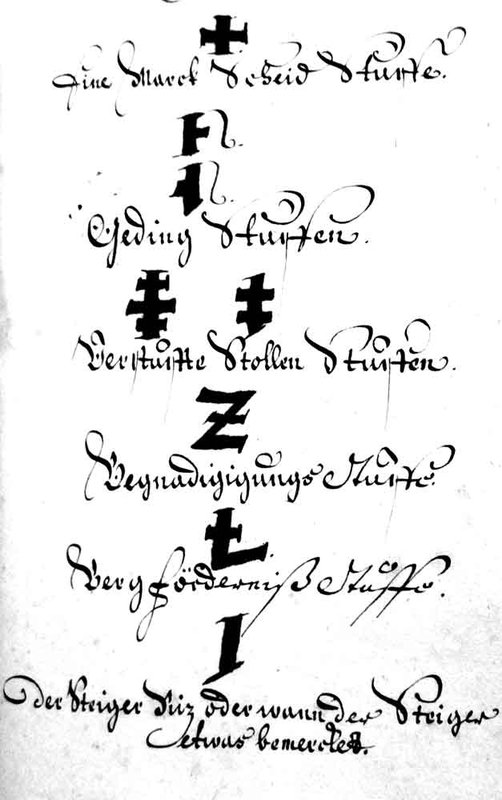 Eine Marck Scheid Stuffe.
Geding Stuffen.
Verstuffte Stollen Stuffen.
Z
Begnadigigungs Stuffe.
Ł
Berg förderniß Stuffe.
I
der Steiger Riz oder wann der Steiger
etwas bemercket.